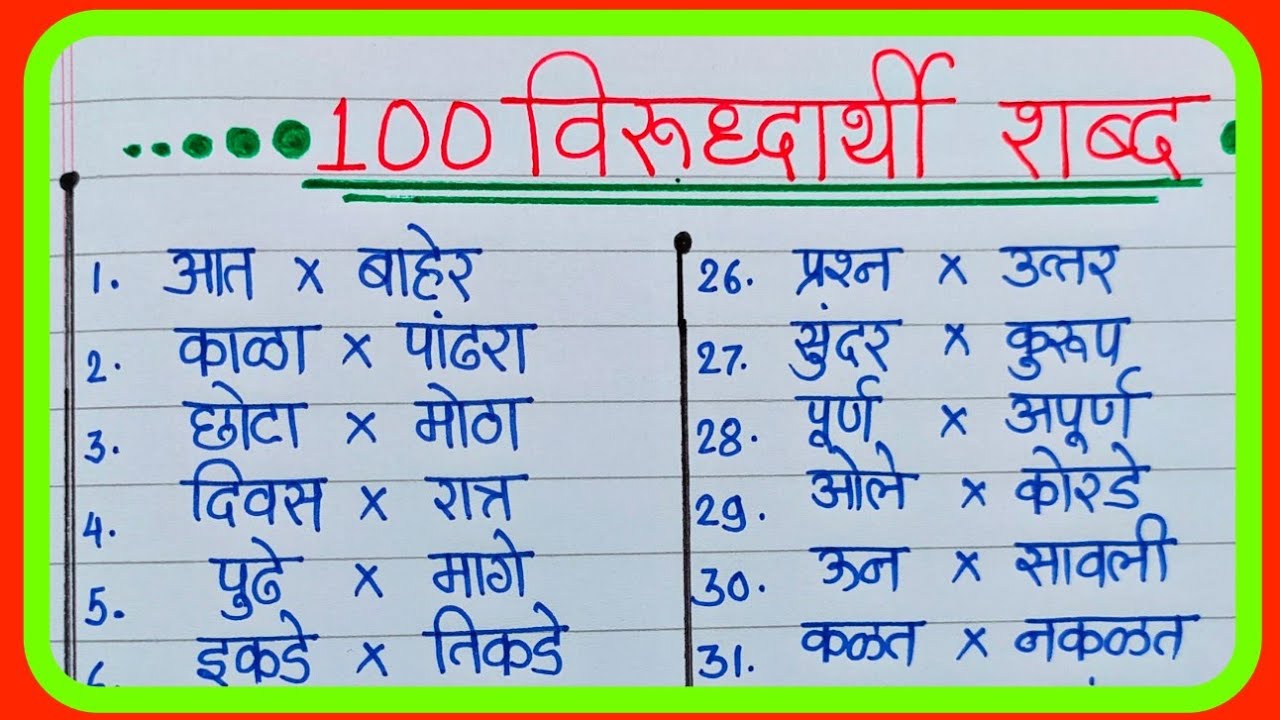 100 विरूध्दार्थी शब्द
1. आत x बाहेर
2. काळा x पांढरा
3. छोटा x मोठा
4. दिवस x रात्र
5. पुढे x मागे
इकडे x तिकडे
26. प्रश्न x उत्तर
27. सुंदर x कुरूप
28. पूर्ण x अपूर्ण
29. ओले x कोरडे
30. ऊन x सावली
31. कळत x नकळत